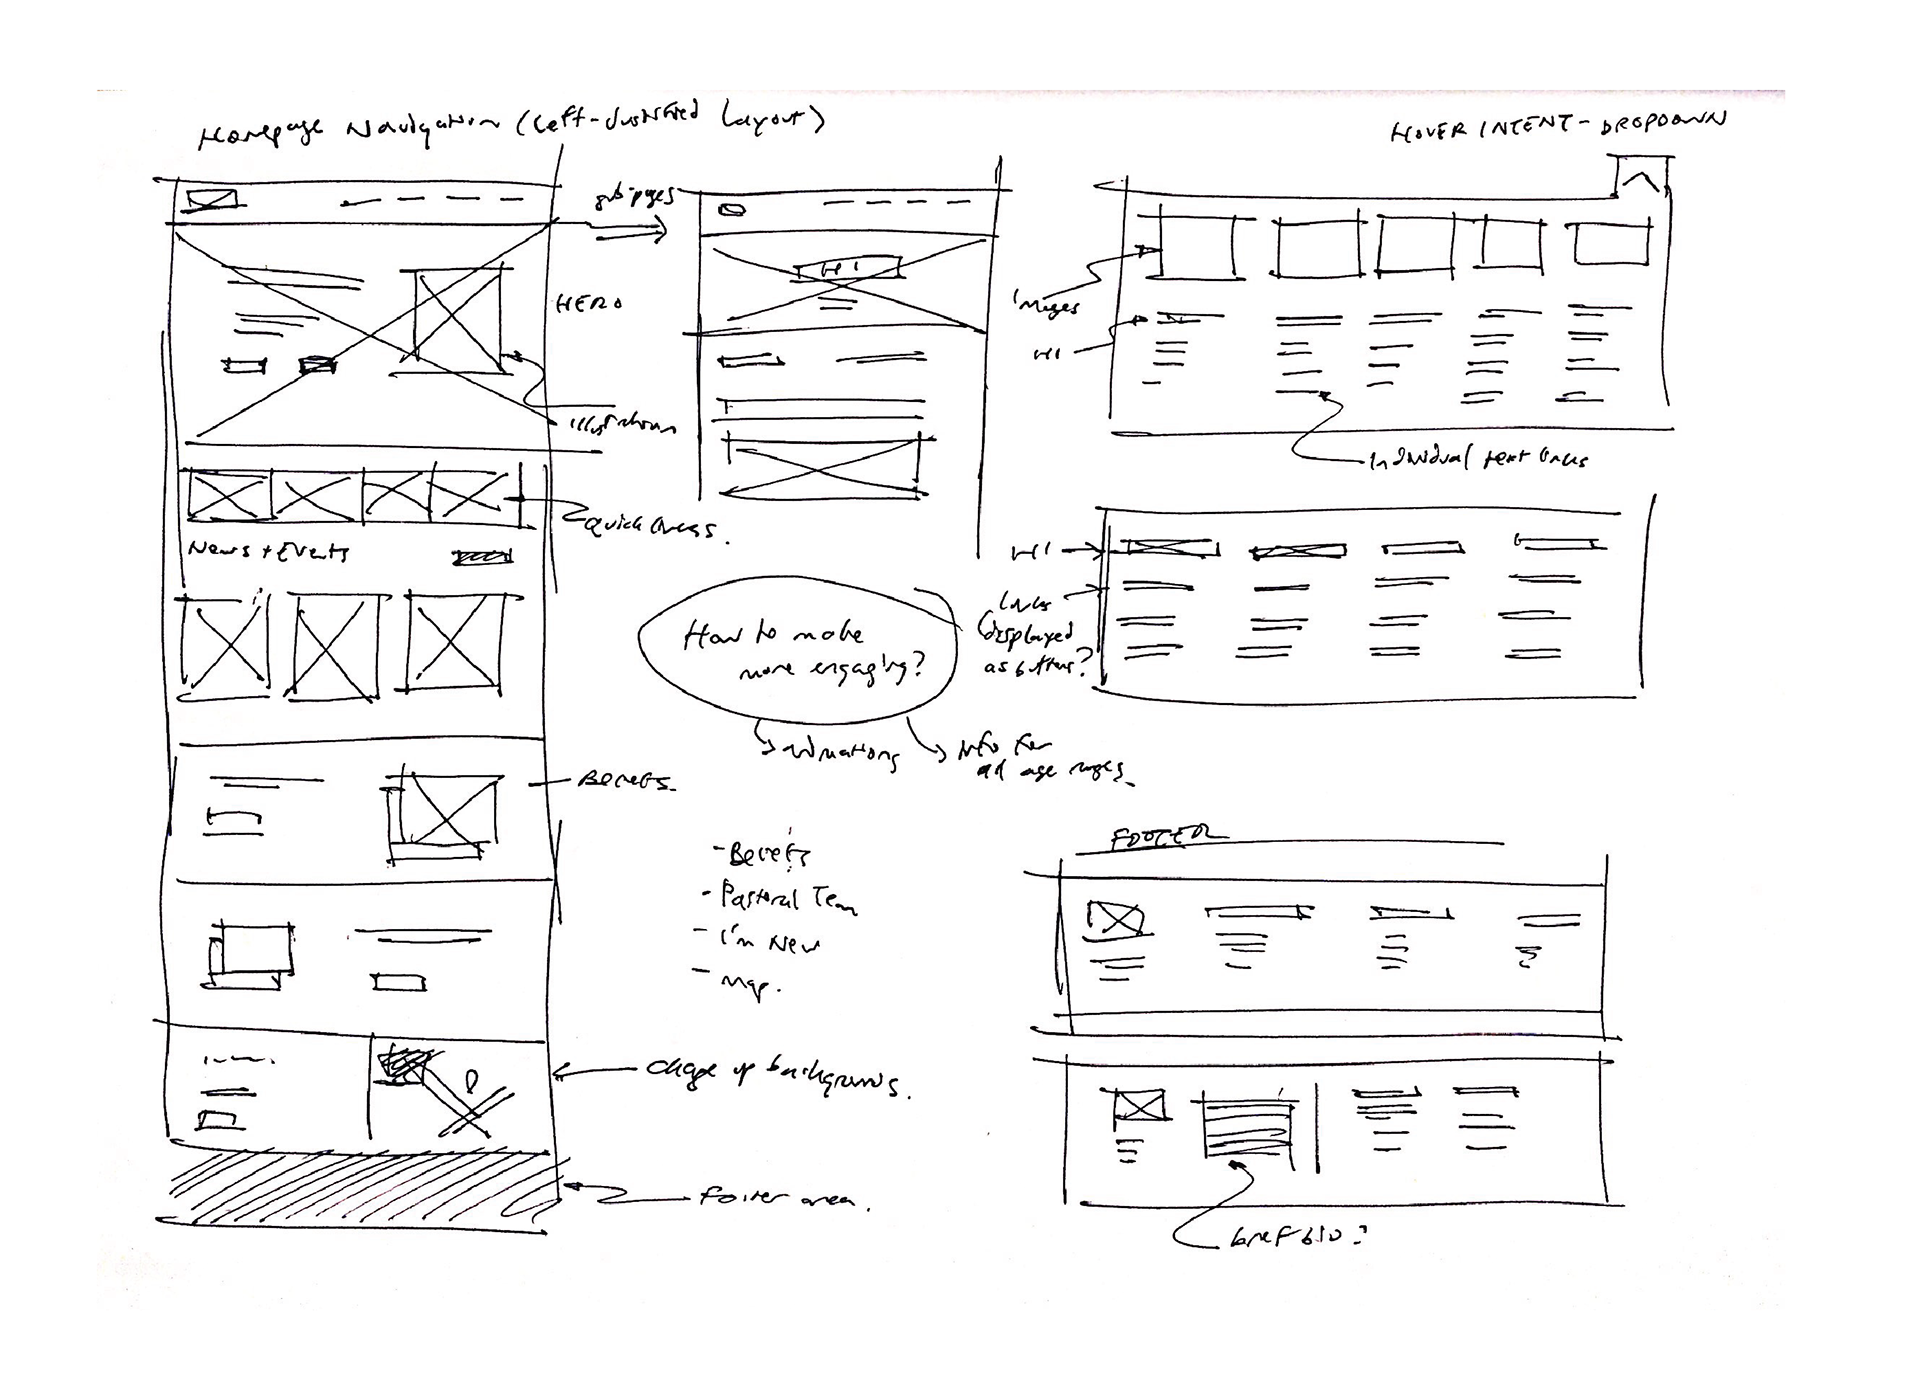 Homepage Navigation (Left-Justified Layout)
HOVER INTENT - DROPDOWN
subpages
H1
HERO
Illustrations
Images
H1
Individual text links
Quick Access.
News + Events
H1
Links
displayed
as buttons?
How to make
more engaging?
Animations
Info for
all age ranges.
Benefits.
- Benefits
- Pastoral Team
- I'm New
- Map.
FOOTER
Change up backgrounds.
Footer area.
brief bio?